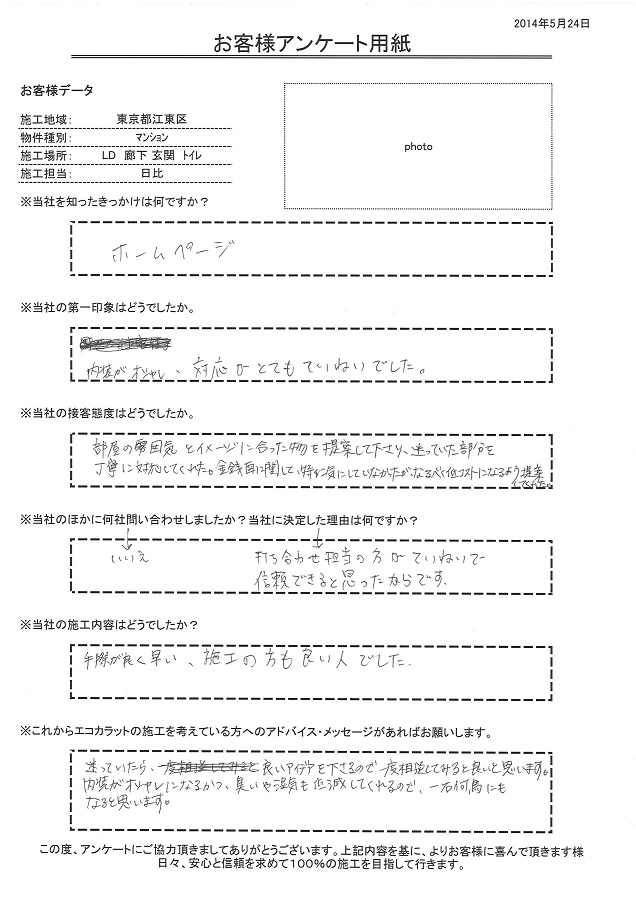 2014年5月24日
お客様アンケート用紙
お客様データ
施工地域: 東京都江東区
物件種別: マンション
施工場所: LD 廊下 玄関 トイレ
施工担当: 日比
photo
※当社を知ったきっかけは何ですか？
ホームページ
※当社の第一印象はどうでしたか。
内装がオシャレ、対応がとてもていねいでした。
※当社の接客態度はどうでしたか。
部屋の雰囲気とイメージに合った物を提案して下さり、迷っていた部分を
丁寧に対応してくれた。金銭面に関して特に気にしていなかったがなるべく低コストになるよう提案
してくれた。
※当社のほかに何社問い合わせしましたか？当社に決定した理由は何ですか？
いいえ 打ち合わせ担当の方がていねいで
信頼できると思ったからです.
※当社の施工内容はどうでしたか？
手際が良く早い、施工の方も良い人でした.
※これからエコカラットの施工を考えている方へのアドバイス・メッセージがあればお願いします。
迷っていたら、良いアイデアを下さるので一度相談してみると良いと思います。
内装がオシャレになるかつ、臭いや湿気も低減してくれるので、一石何鳥にも
なると思います。
この度、アンケートにご協力頂きましてありがとうございます。上記内容を基に、よりお客様に喜んで頂きます様
日々、安心と信頼を求めて100%の施工を目指して行きます。